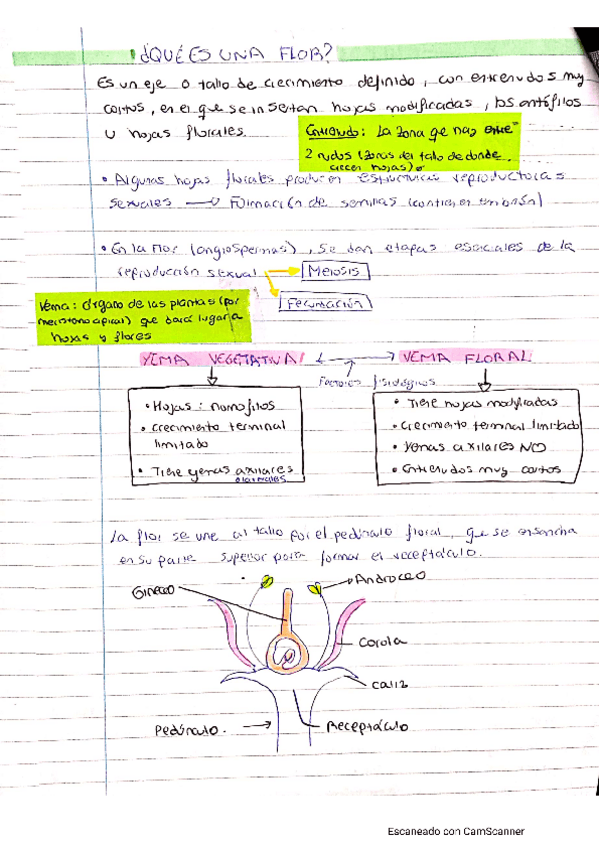 ¿QUÉ ES UNA FLOR?
Es un eje o tallo de crecimiento definido, con entrenudos muy
cortos, en el que se insertan hojas modificadas, los antófilos
u hojas florales.
Entrenudo: La zona que hay entre
2 nudos (zonas del tallo de donde
crecen hojas)
• Algunas hojas florales producen estructuras reproductoras
sexuales → Formación de semillas (contienen embrión)
• En la flor (angiospermas), se dan etapas esenciales de la
reproducción sexual
Meiosis
Fecundación
Yema: órgano de las plantas (por
meristemo apical) que dará lugar a
hojas y flores
YEMA VEGETATIVA
YEMA FLORAL:
Factores fisiológicos
• Hojas: nomofilos
• crecimiento terminal
limitado
• Tiene yemas axilares
• Tiene hojas modificadas
• Crecimiento terminal limitado
• Yemas axilares NO
• Entrenudos muy cortos
La flor se une al tallo por el pedúnculo floral, que se ensancha
en su parte superior para formar el receptáculo.
Gineceo
Androceo
Corola
Caliz
Pedúnculo.
Receptáculo
Escaneado con CamScanner